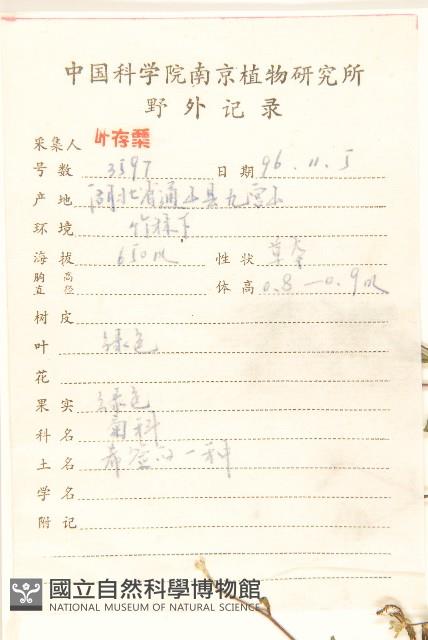 中国科学院南京植物研究所
野外记录
采集人 叶存粟
号数 3597 日期 96.11.5
产地 湖北省通山县九宫山
环境 竹林下
海拔 650M 性状 草本
胸高直径 体高 0.8—0.9M
树皮
叶 绿色
花
果实 绿色
科名 菊科
土名 一种
学名
附记
國立自然科學博物館
NATIONAL MUSEUM OF NATURAL SCIENCE